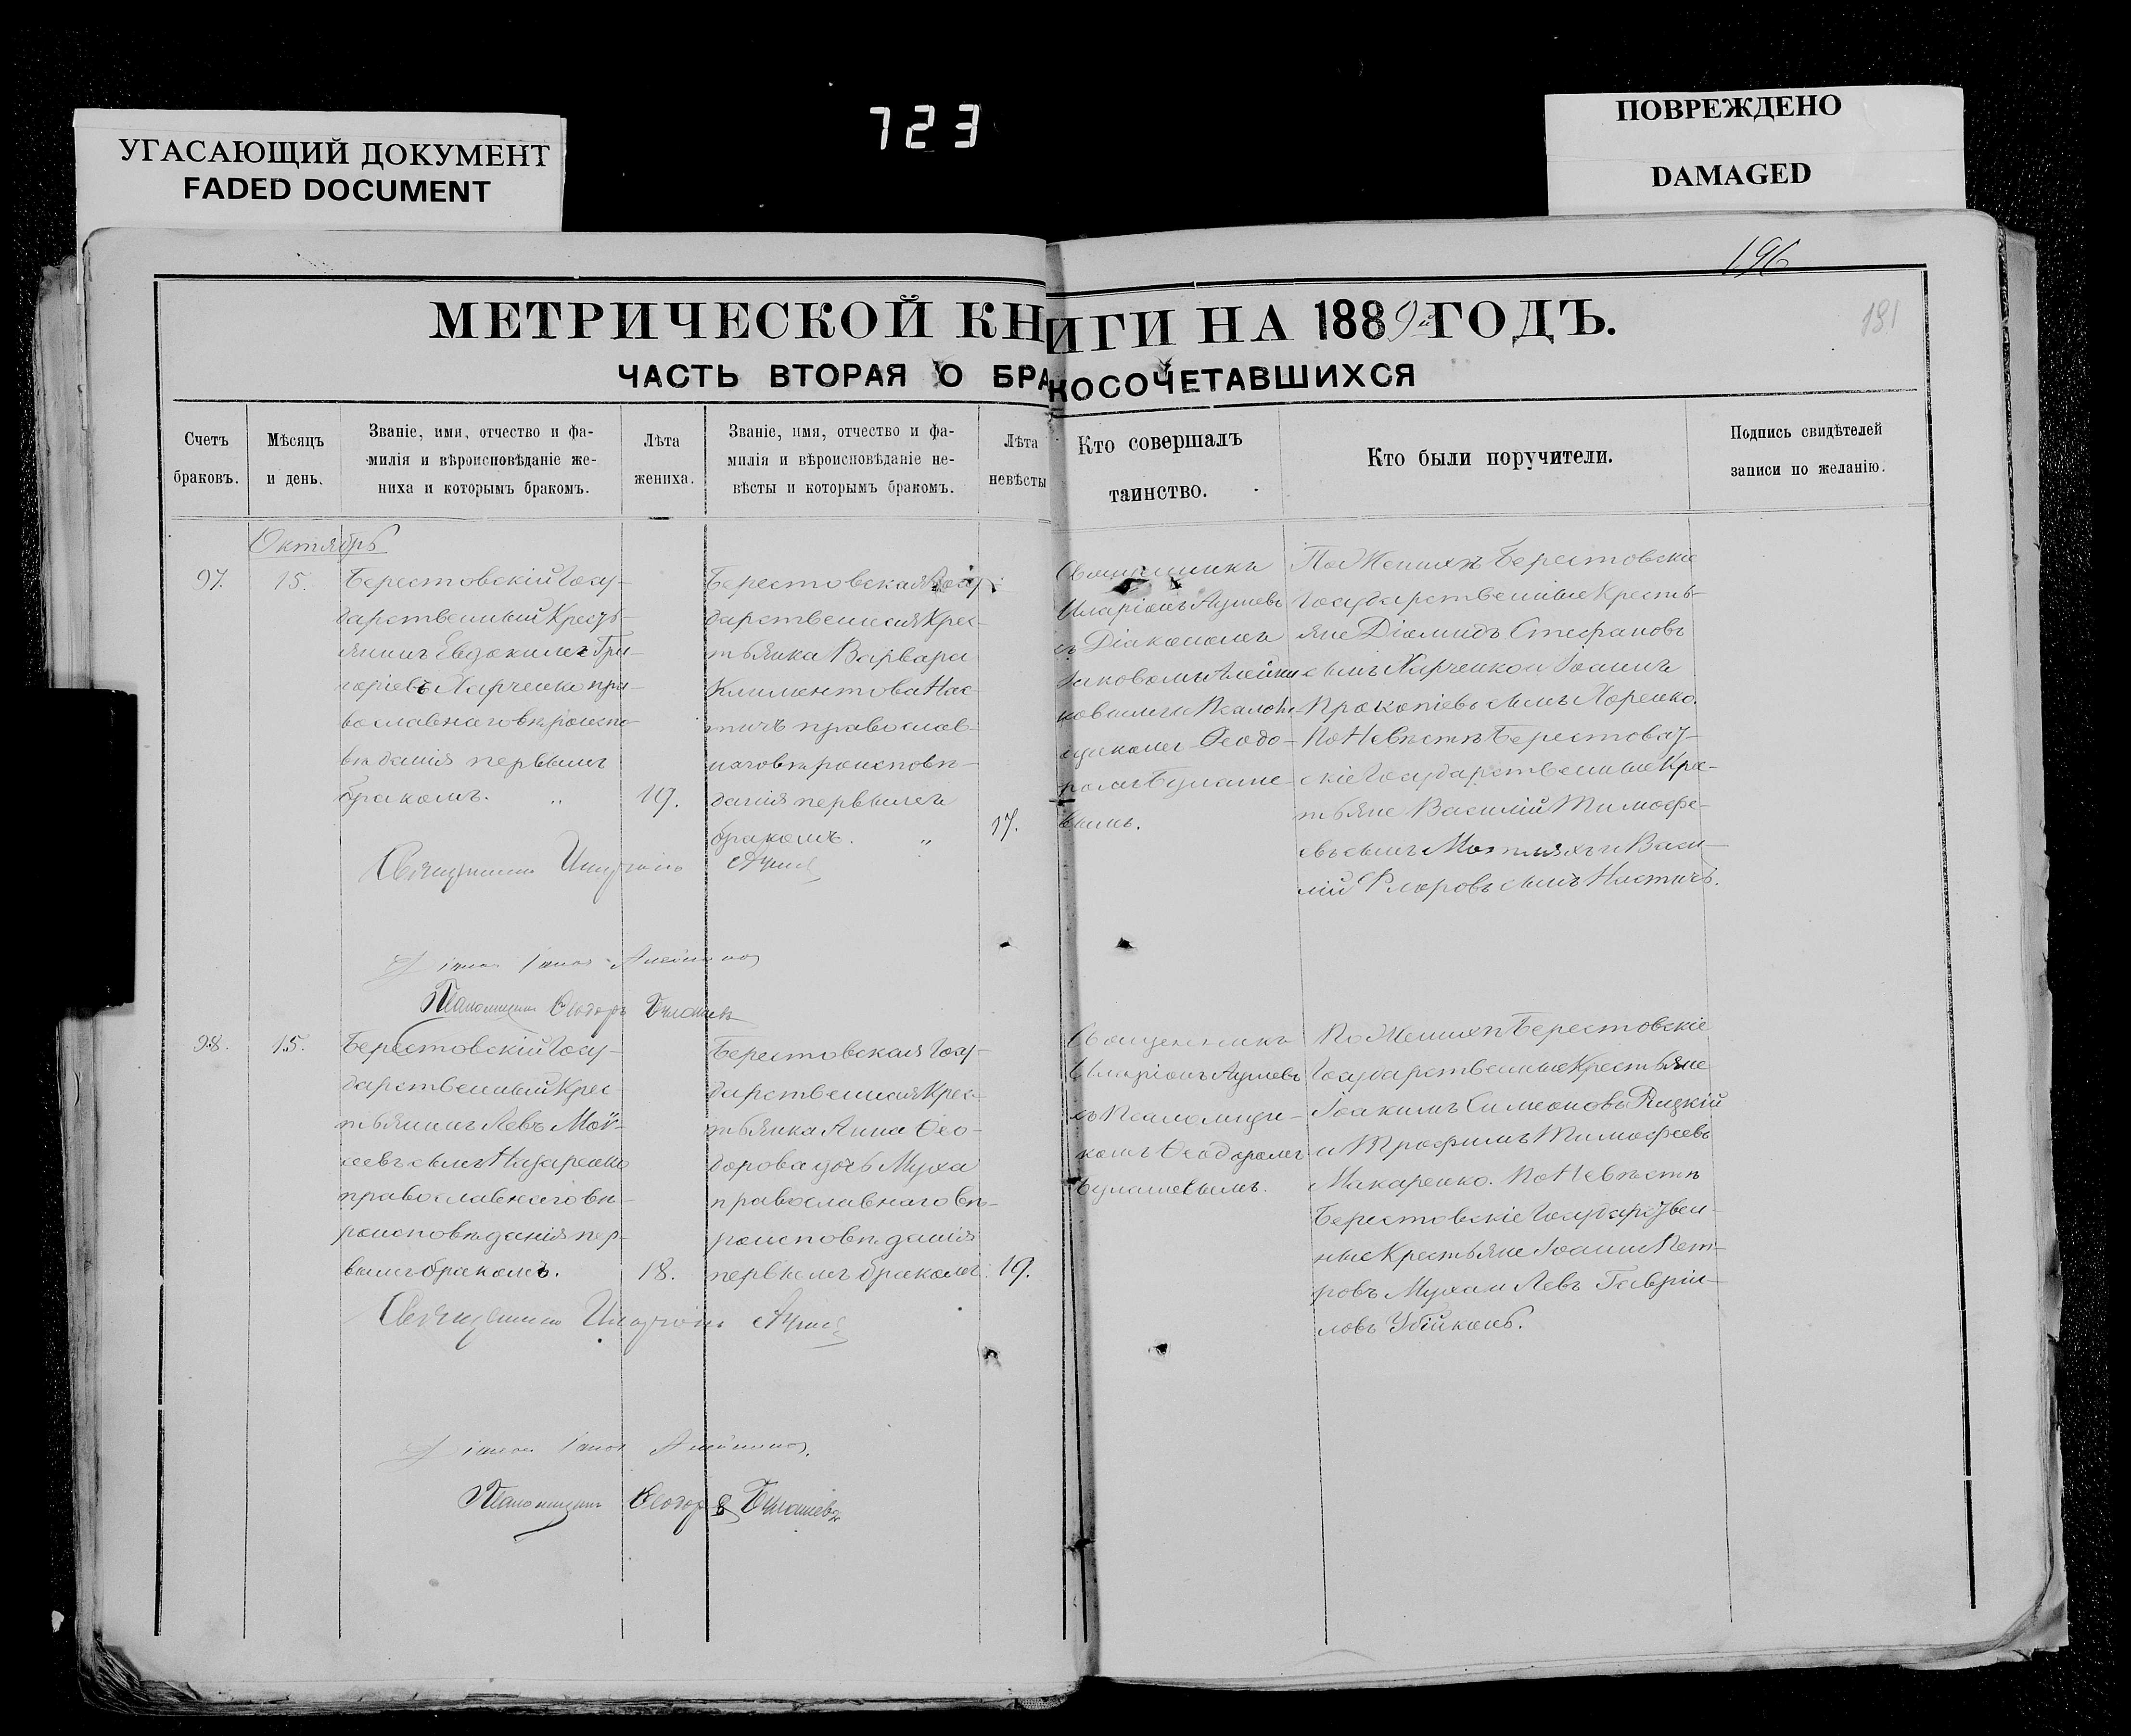 723
УГАСАЮЩИЙ ДОКУМЕНТ
FADED DOCUMENT
ПОВРЕЖДЕНО
DAMAGED
196
181
МЕТРИЧЕСКОЙ КНИГИ НА 1889й ГОДЪ.
ЧАСТЬ ВТОРАЯ О БРАКОСОЧЕТАВШИХСЯ
Счетъ
браковъ.
Мѣсяцъ
и день.
Званіе, имя, отчество и фа-
милія и вѣроисповѣданіе же-
ниха и которымъ бракомъ.
Лѣта
жениха.
Званіе, имя, отчество и фа-
милія и вѣроисповѣданіе не-
вѣсты и которымъ бракомъ.
Лѣта
невѣсты
Кто совершалъ
таинство.
Кто были поручители.
Подпись свидѣтелей
записи по желанію.
Октябрь
97.
15.
Берестовскій Госу-
дарственный Кресть-
янинъ Евдокимъ Гри-
горіевъ Харченко пра-
вославнаго вѣроиспо-
вѣданія первымъ
бракомъ. „
19.
Берестовская Госу-
дарственная Крес-
тьянка Варвара
Климентова Нас-
тичъ православ-
наго вѣроисповѣ-
данія первымъ
бракомъ. „
17.
Священникъ
Иларіонъ
съ Діакономъ

Ѳеодо-
ромъ Булаше-
вымъ.
По Женихѣ Берестовскіе
Государственные Кресть-
яне Діомидъ Стефановъ
сынъ Харченко и Іоаннъ
Прокопіевъ сынъ Хоренко.
По Невѣстѣ Берестов-
скіе Государственные Крес-
тьяне Василій Тимофе-
евъ сынъ и Васи-
лій Флоровъ сынъ Настичъ.
Священникъ Иларіонъ
Діаконъ
Псаломщикъ Ѳеодоръ Булашевъ
98.
15.
Берестовскій Госу-
дарственный Крес-
тьянинъ Левъ Мой-
сеевъ сынъ Назаренко
православнаго вѣ-
роисповѣданія пер-
вымъ бракомъ.
18.
Берестовская Госу-
дарственная Крес-
тьянка Анна Ѳео-
дорова дочь Муха
православнаго вѣ-
роисповѣданія
первымъ бракомъ.
19.
Священникъ
Иларіонъ
съ Псаломщи-
комъ Ѳеодоромъ
Булашевымъ.
По Женихѣ Берестовскіе
Государственные Крестьяне
Іоакимъ Симеоновъ Рицкій
и Трофимъ Тимофеевъ
Макаренко. По Невѣстѣ
Берестовскіе Государствен-
ные Крестьяне Іоаннъ Пет-
ровъ Муха и Левъ Гавріи-
ловъ
Священникъ Иларіонъ
Діаконъ
Псаломщикъ Ѳеодоръ Булашевъ